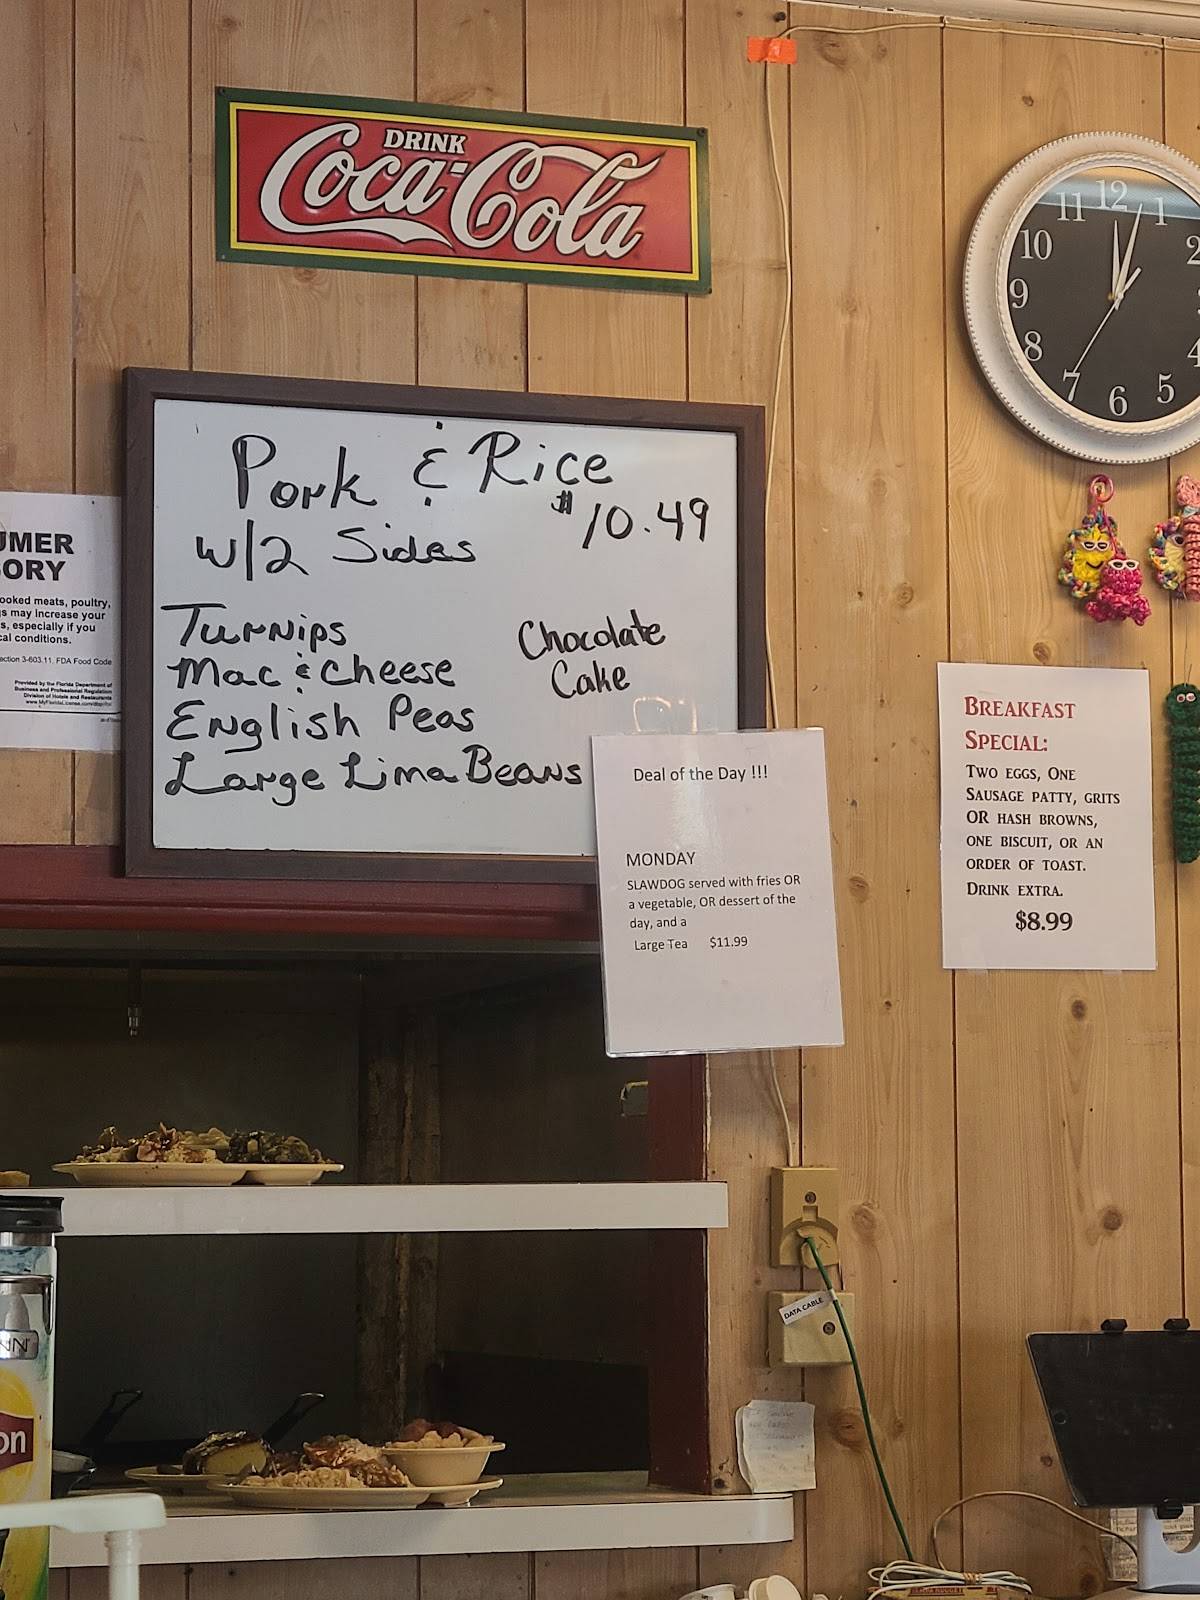 DRINK
Coca-Cola
11 12 1
10 2
9
8 4
7 6 5
Pork & Rice
$10.49
w/2 Sides
Turnips
Mac & Cheese
English Peas
Large Lima Beans
Chocolate
Cake
UMER
ORY
ooked meats, poultry,
s may increase your
s, especially if you
cal conditions.
ection 3-603.11, FDA Food Code
Provided by the Florida Department of
Business and Professional Regulation
Division of Hotels and Restaurants
Deal of the Day !!!
MONDAY
SLAWDOG served with fries OR
a vegetable, OR dessert of the
day, and a
Large Tea $11.99
BREAKFAST
SPECIAL:
TWO EGGS, ONE
SAUSAGE PATTY, GRITS
OR HASH BROWNS,
ONE BISCUIT, OR AN
ORDER OF TOAST.
DRINK EXTRA.
$8.99
DATA CABLE
NN
on